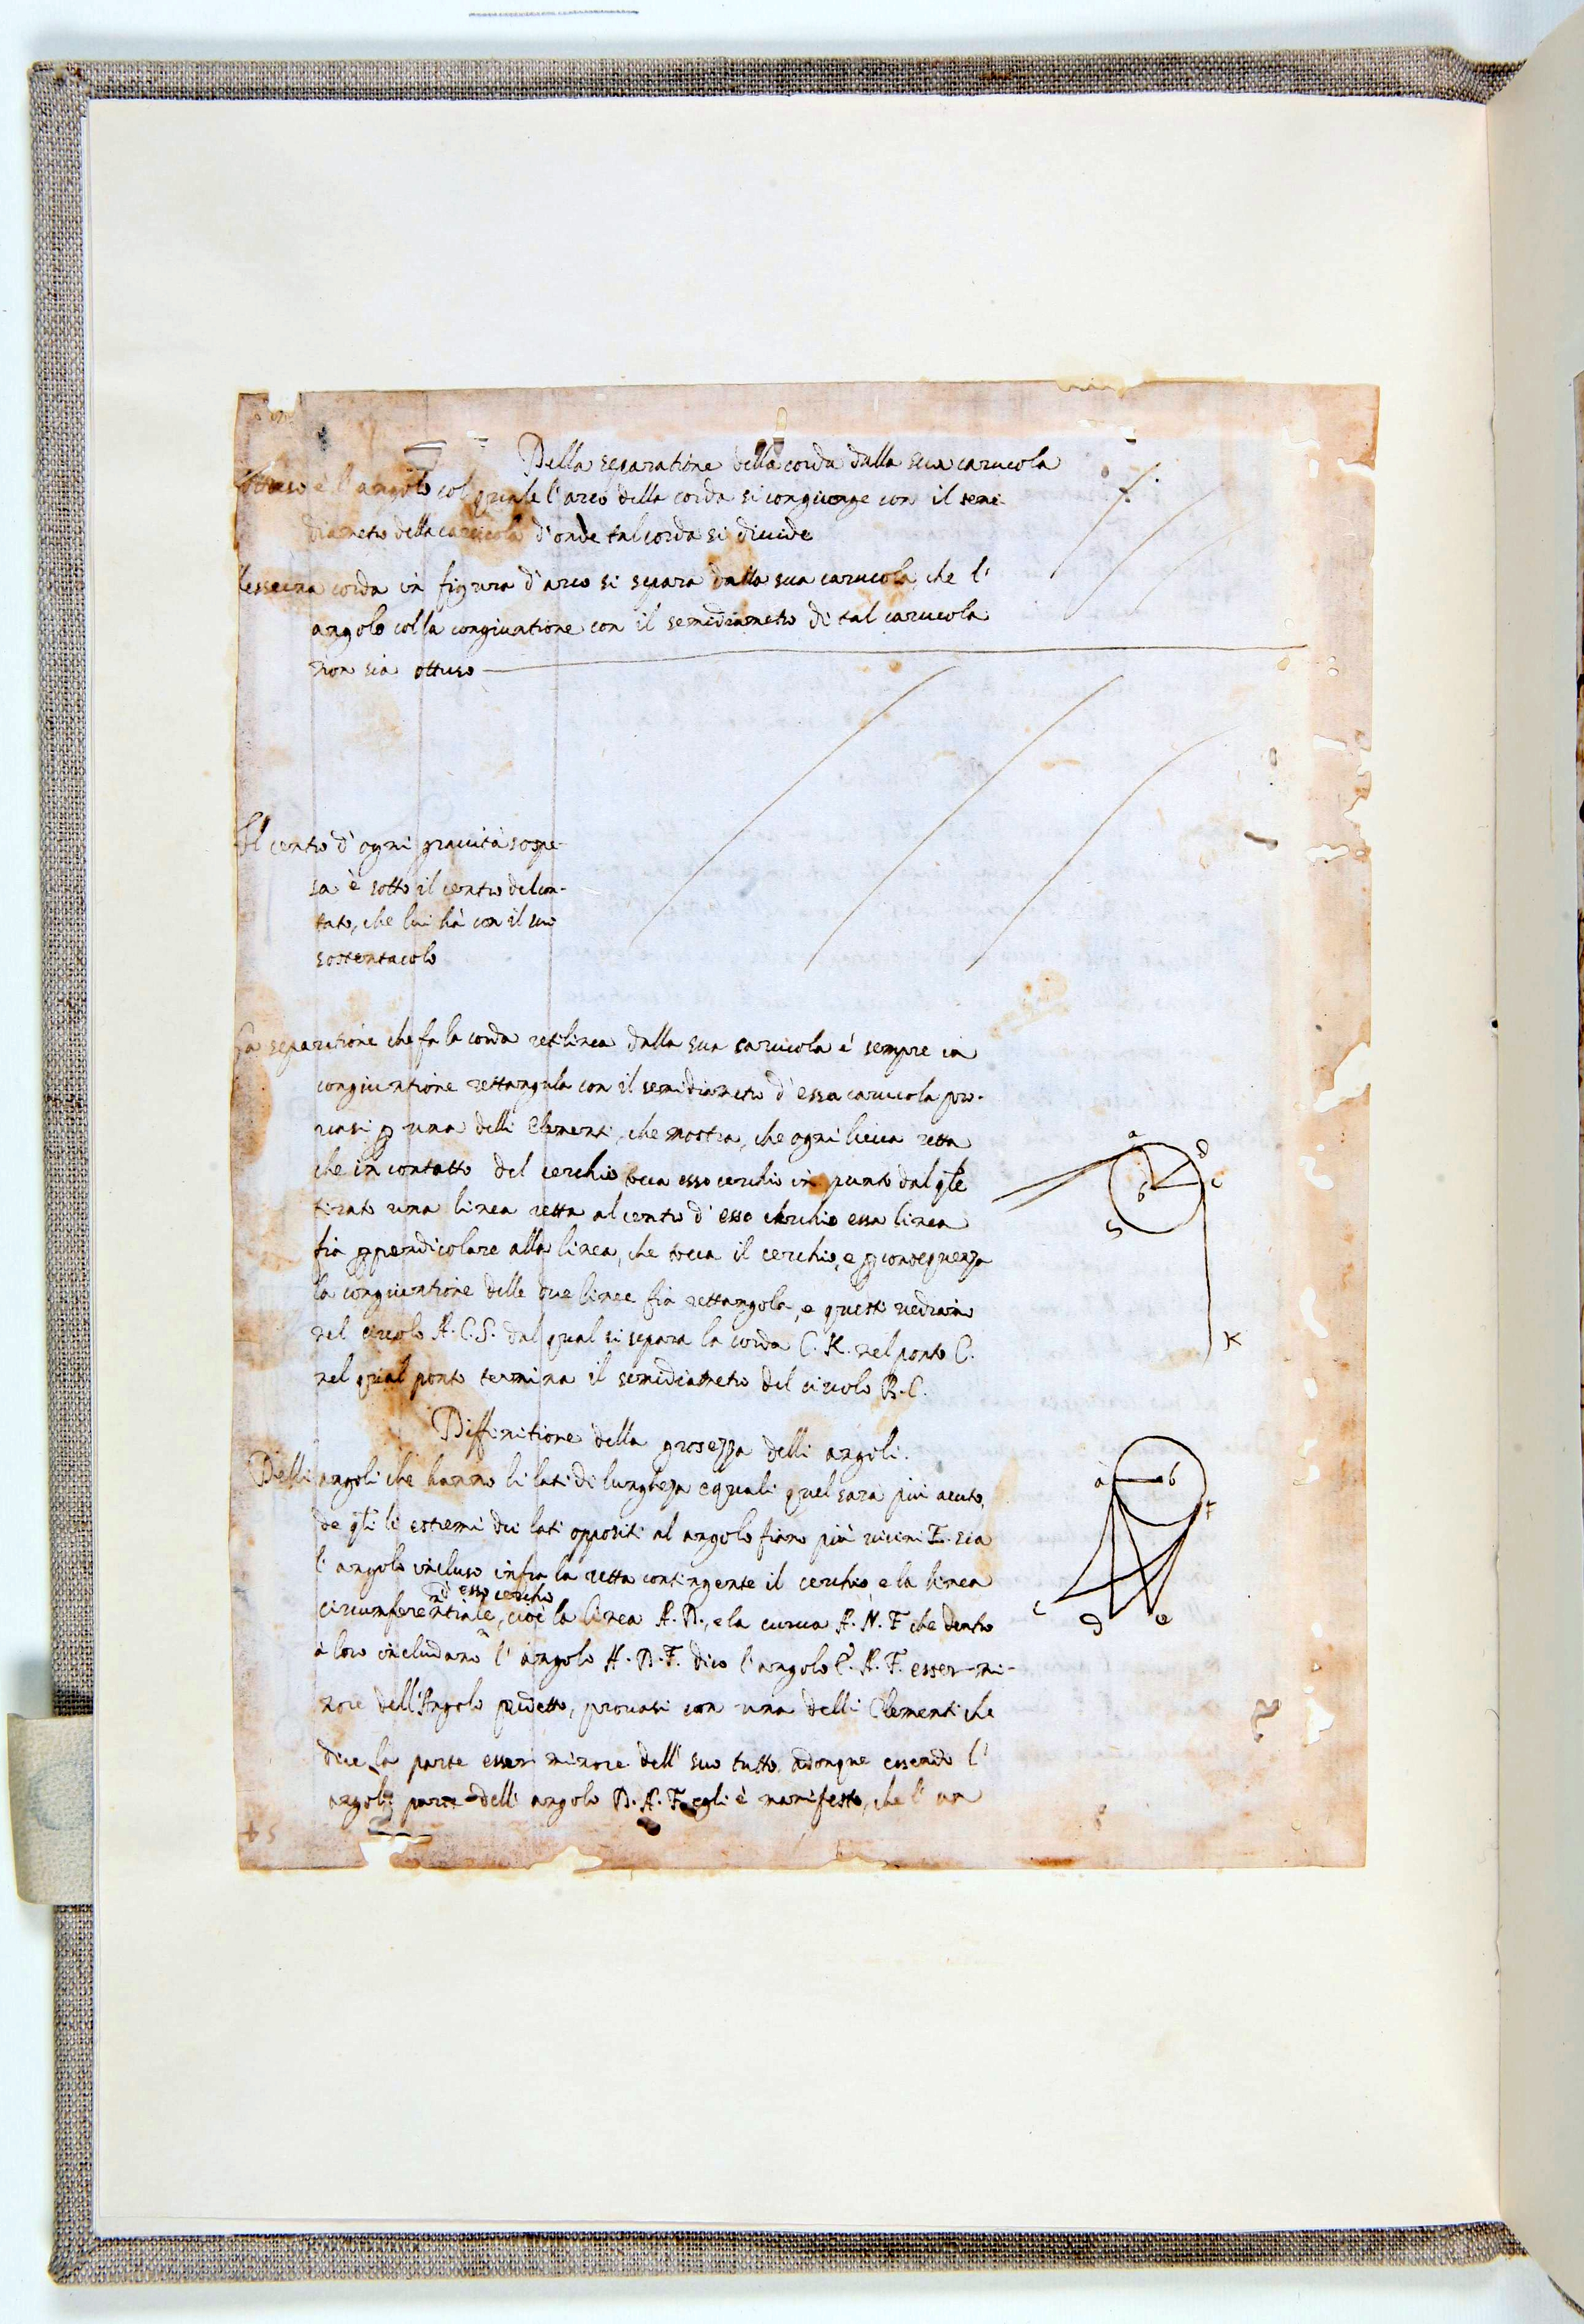 Della separatione della corda dalla sua carucola
Ottuso è l'angolo col quale l'arco della corda si congiunge con il semi-
diametro della carucola d'onde tal corda si diuide
corda in figura d'arco si separa dalla sua carucola, che l'
angolo colla congiuntione con il semidiametro di tal carucola
non sia ottuso
Il centro d'ogni grauità sospe-
sa è sotto il centro del con-
tato, che lui hà con il suo
sostentacolo
La separatione che fa la corda retilinea dalla sua carucola è sempre in
congiuntione rettangula con il semidiametro d'essa carucola pro-
uasi p una delli Elementi, che mostra, che ogni linea retta
che in contatto del cerchio tocca esso cerchio in punto dal qle
tirato una linea retta al centro d'esso cerchio essa linea
fia ppendicolare alla linea, che tocca il cerchio, e p consequenza
la congiuntione delle due linee fia rettangola, e questo uedrain
nel circolo A.C.S. dal qual si separa la corda C.K. nel ponto C.
nel qual ponto termina il semidiametro del circolo B.C.
a
D
b
c
S
K
Diffinitione della grosezza delli angoli.
Delli angoli che hanno li lati di lungheza equali quel sarà più acuto,
de qli li estremi dei lati oppositi al angolo fiano più uicini E. sia
l'angolo incluso infra la retta contingente il cerchio, e la linea
d'esso cerchio
circunferentiale, cioè la linea A.B., e la curua A.N.F che dentro
à loro includano l'angolo A.B.F. dico l'angolo C.A.F. esser mi-
nore dell'Angolo predetto, prouasi con una delli Elementi che
dice la parte esser minore dell' suo tutto, adonque essendo l'
angolo parte dell' angolo B.A.F. egli è manifesto, che l' un
a
b
F
c
D
e